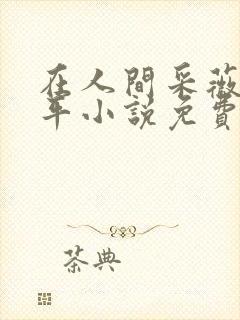 在人間采薇
年小説免費
茶典